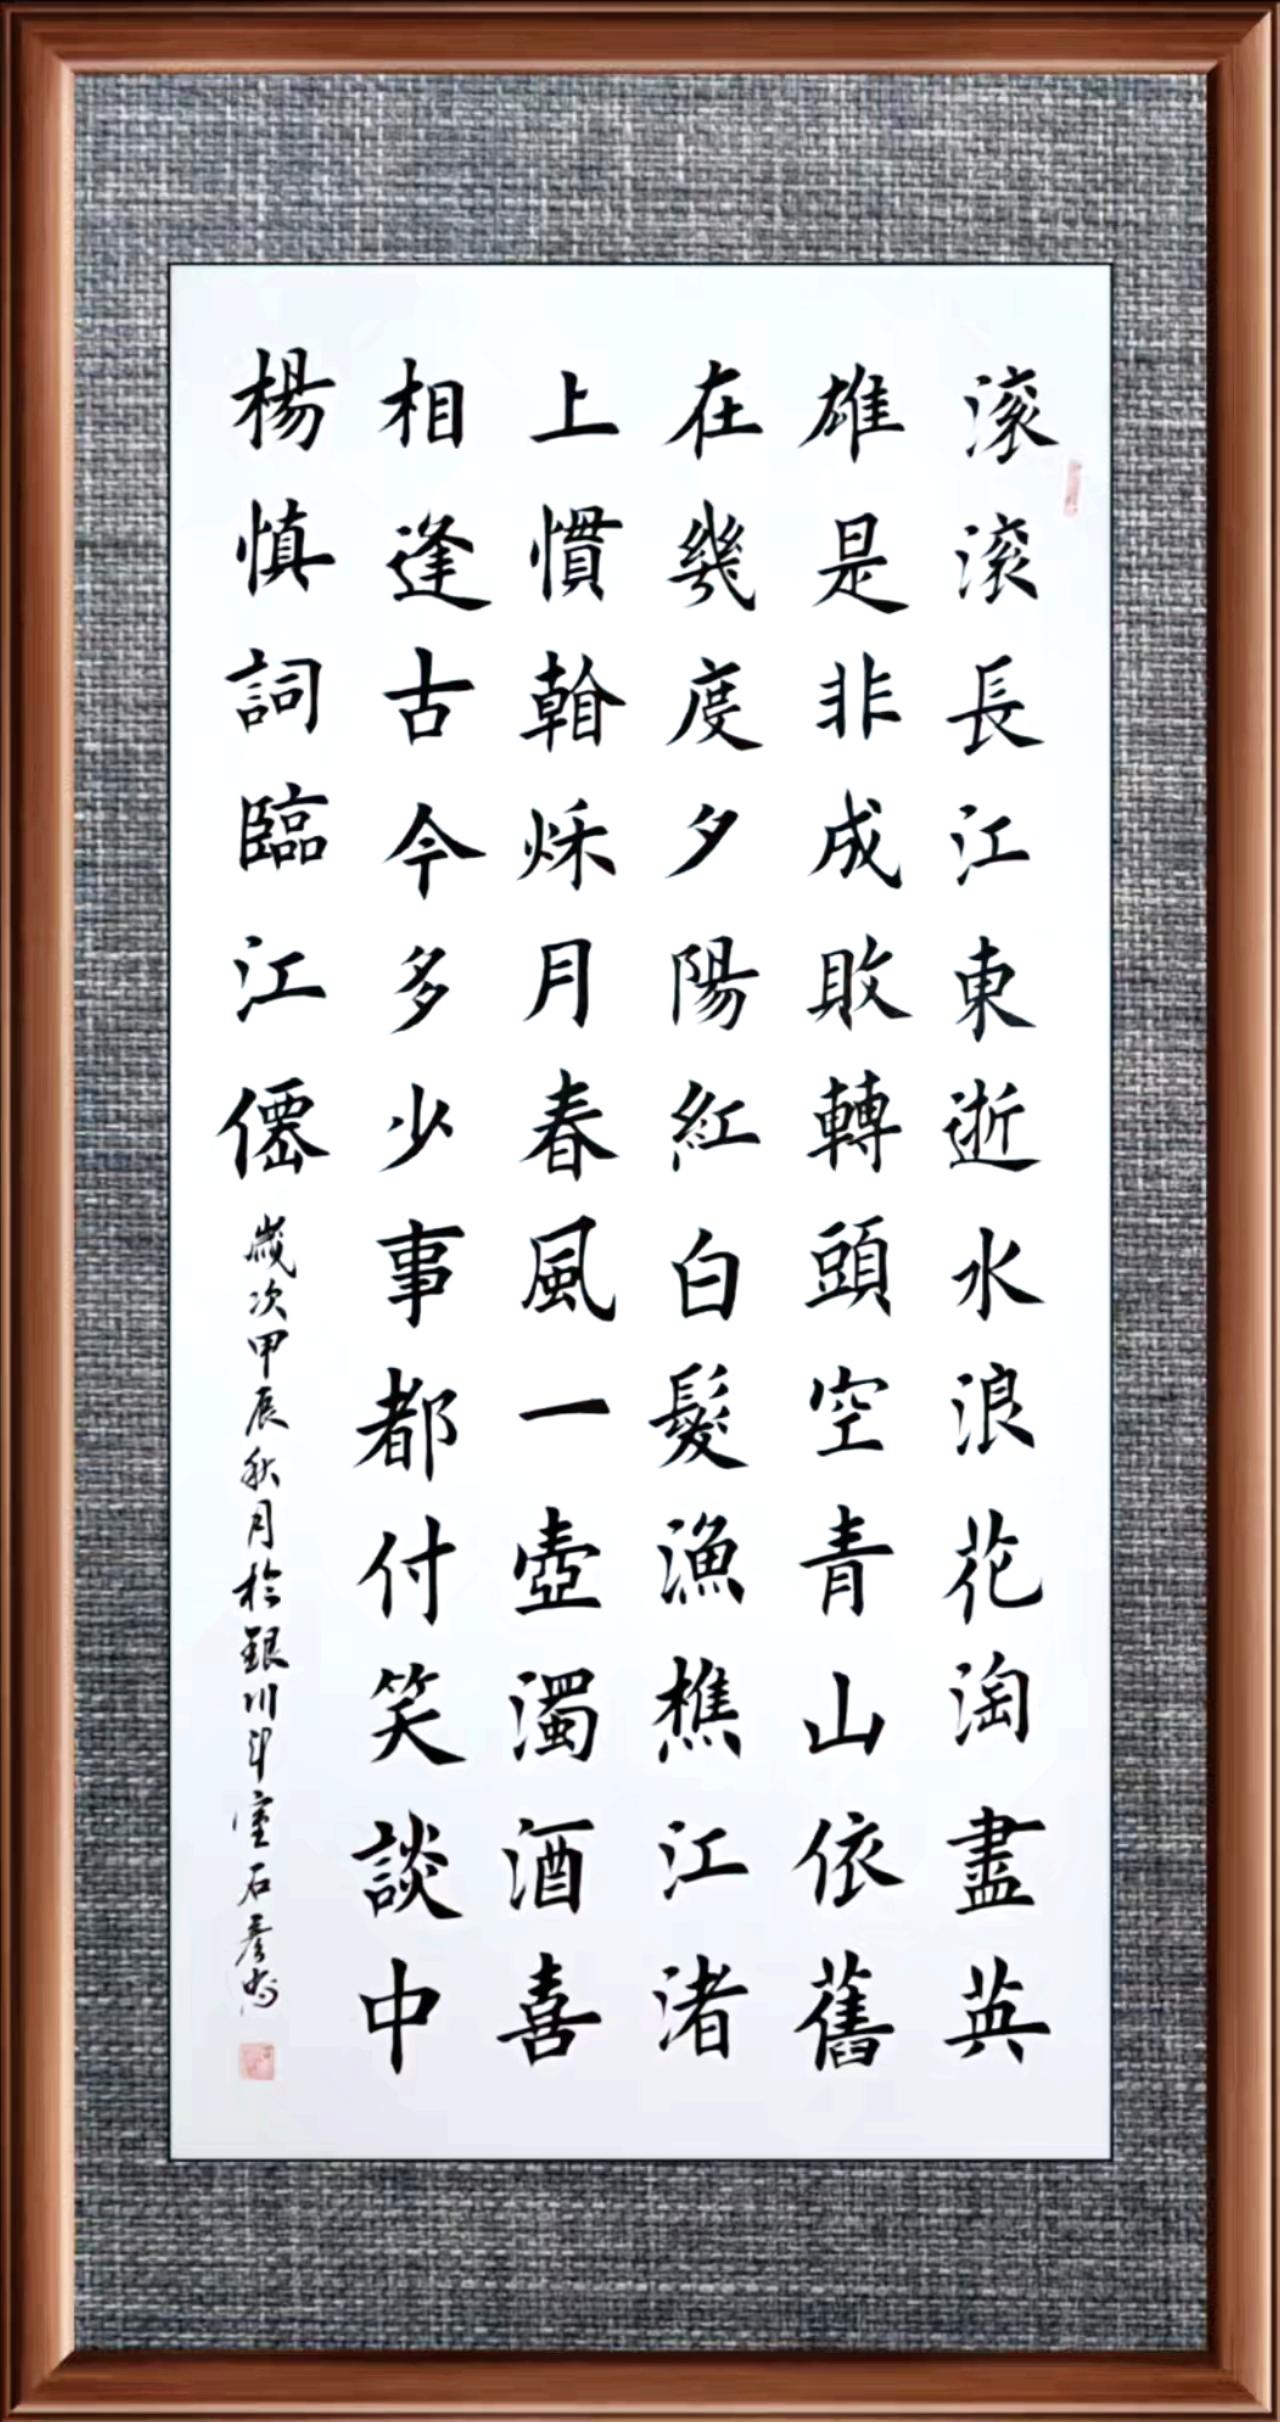 滚滚長江東逝水浪花淘盡英
雄是非成敗轉頭空青山依舊
在幾度夕陽紅白髮漁樵江渚
上慣看秌月春風一壺濁酒喜
相逢古今多少事都付笑談中
楊慎詞臨江僊
歲次甲辰秋月於銀川斗室石彥